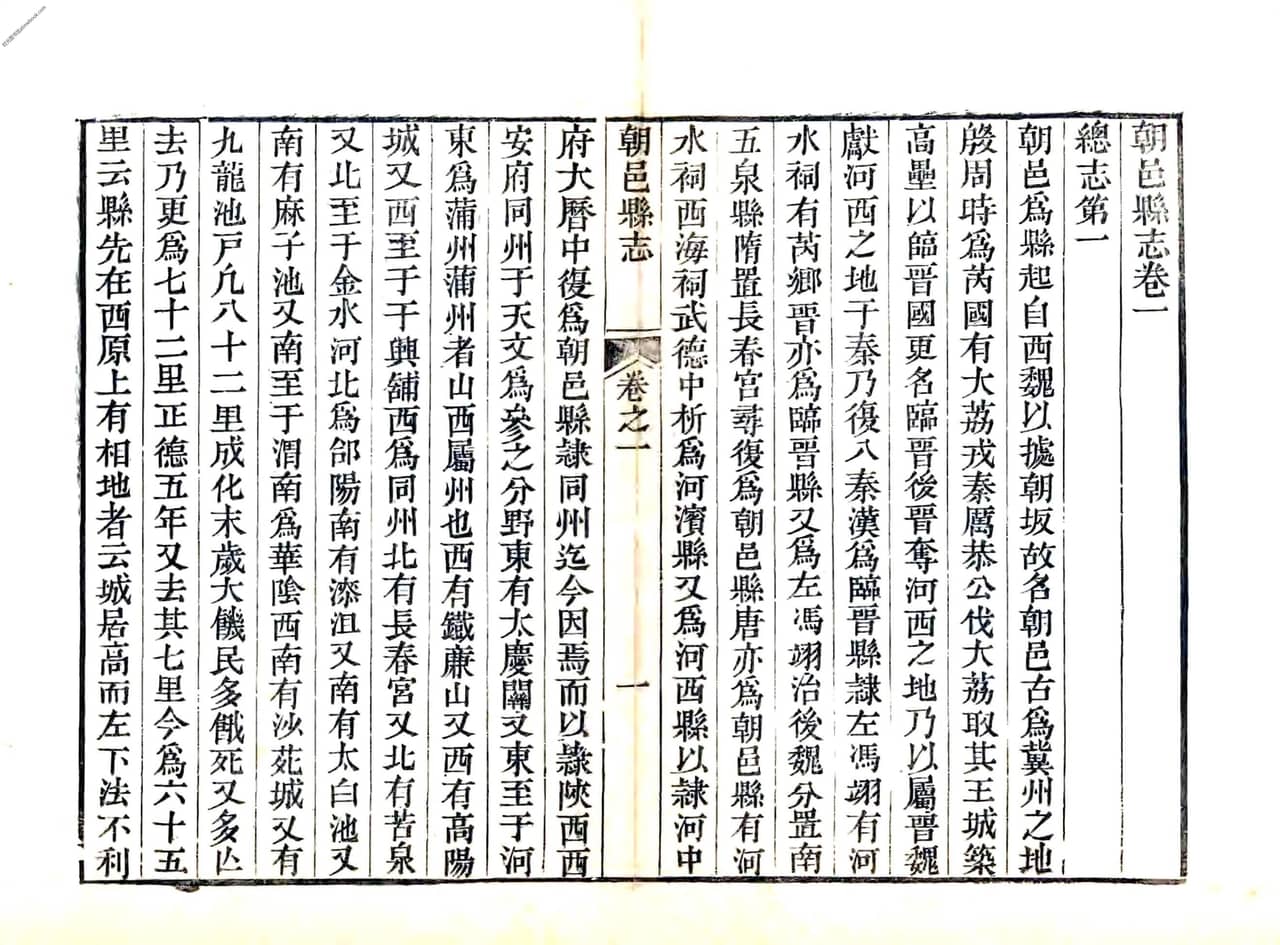 朝邑縣志卷一
總志第一
朝邑爲縣起自西魏以據朝坂故名朝邑古爲冀州之地
殷周時爲芮國有大荔戎秦厲恭公伐大荔取其王城築
高壘以臨晉國更名臨晉後晉奪河西之地乃以屬晉魏
獻河西之地于秦乃復入秦漢爲臨晉縣隸左馮翊有河
水祠有芮鄉晉亦爲臨晉縣又爲左馮翊治後魏分置南
五泉縣隋置長春宮尋復爲朝邑縣唐亦爲朝邑縣有河
水祠西海祠武德中析爲河濱縣又爲河西縣以隸河中
朝邑縣志 卷之一 一
府大曆中復爲朝邑縣隸同州迄今因焉而以隸陝西西
安府同州于天文爲參之分野東有大慶關又東至于河
東爲蒲州蒲州者山西屬州也西有鐵鐮山又西有高陽
城又西至于干興舖西爲同州北有長春宮又北有苦泉
又北至于金水河北爲郃陽南有漆沮又南有太白池又
南有麻子池又南至于渭南爲華陰西南有沙苑城又有
九龍池戸凢八十二里成化末歲大饑民多餓死又多亾
去乃更爲七十二里正德五年又去其七里今爲六十五
里云縣先在西原上有相地者云城居高而左下法不利